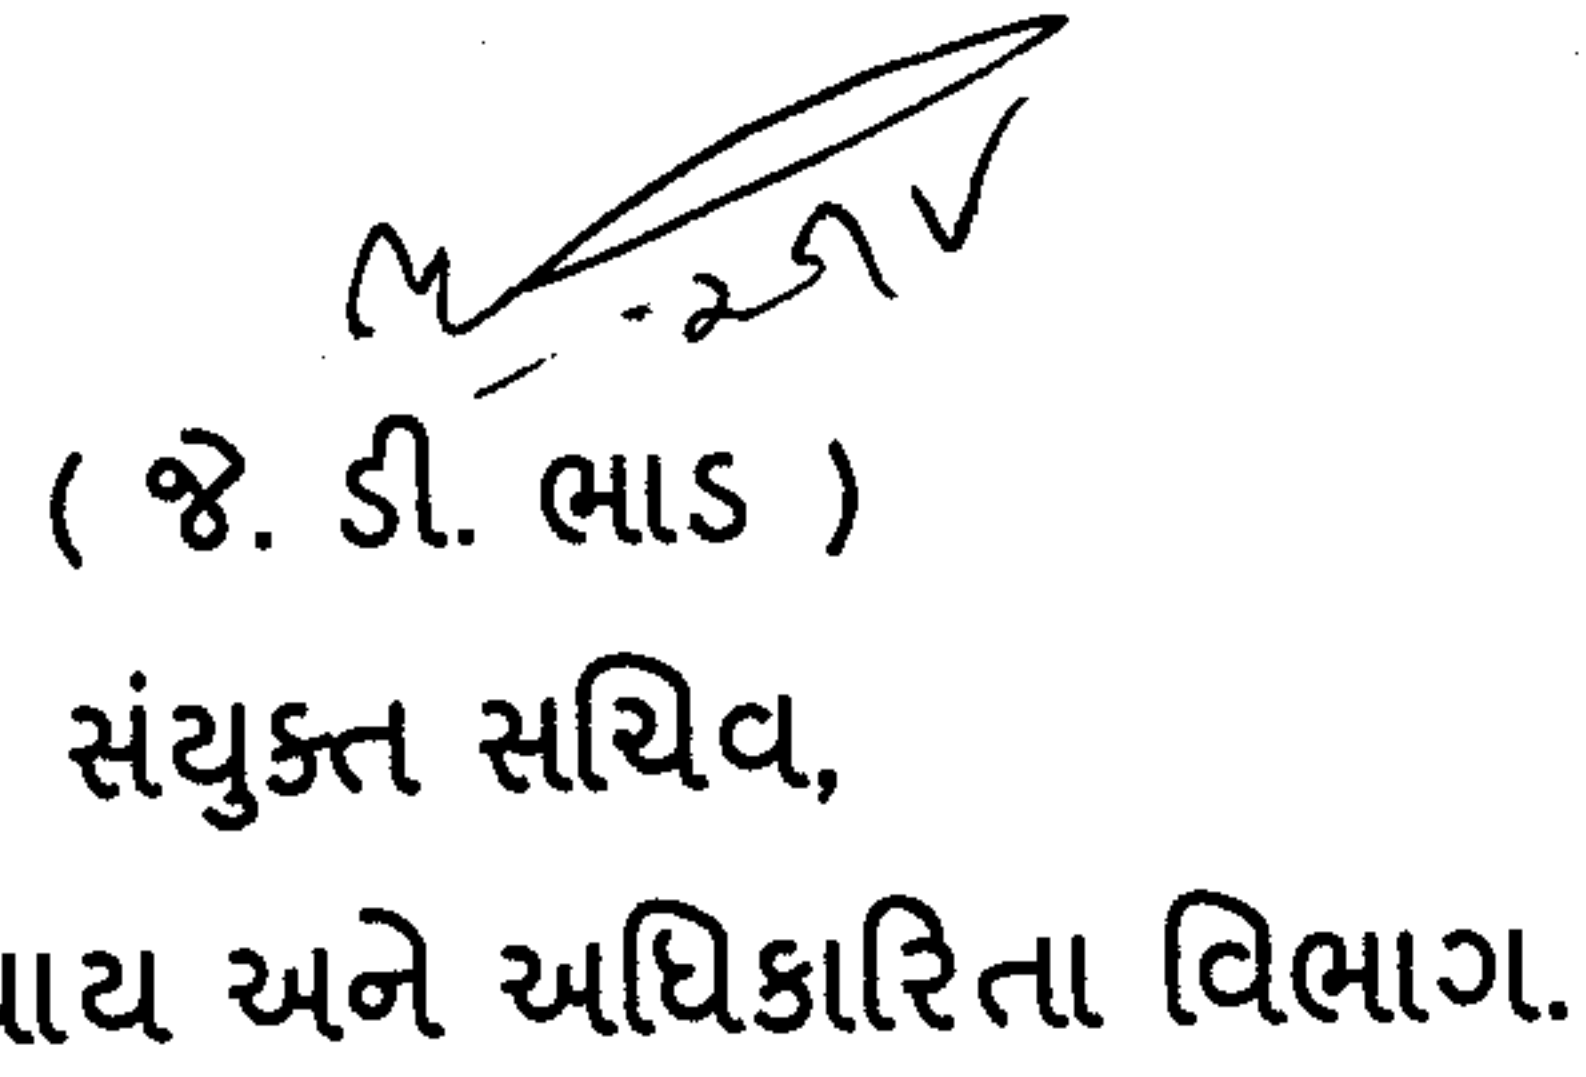 ( જે. ડી. ભાડ )
સંયુક્ત સચિવ,
અને અધિકારિતા વિભાગ.